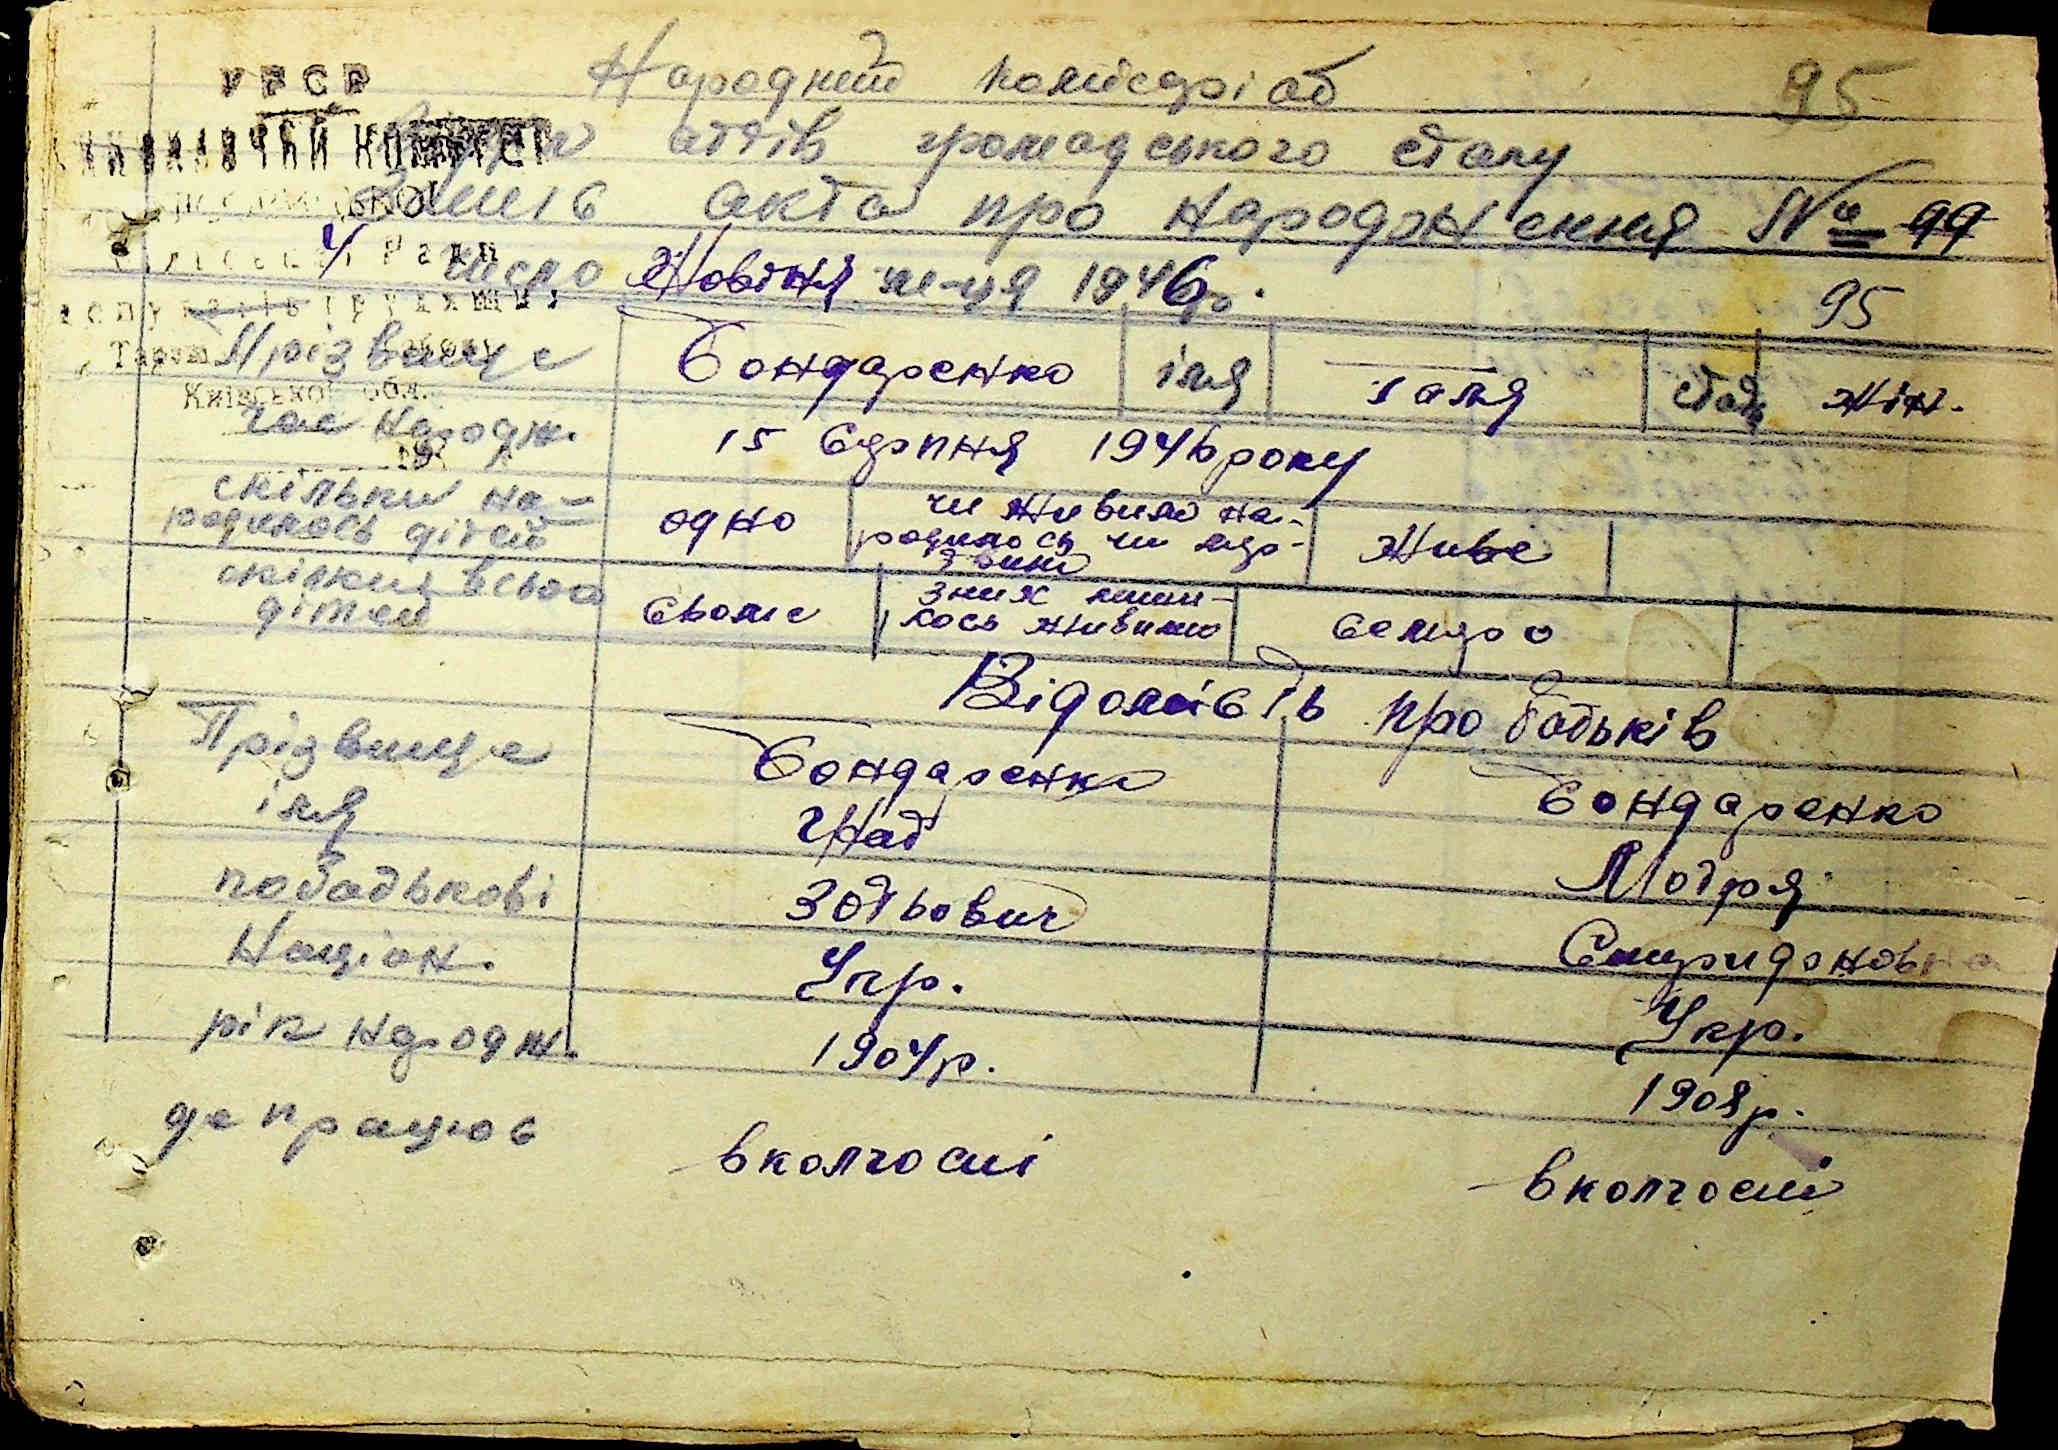 УРСР
Народний комісаріат 95
актів громадського стану
Запис акта про народження № 99
4 число Жовтня м-ця 1946р. 95
Прізвище Бондаренко імя Галя стать жін.
Київської обл.
час народж. 15 Серпня 1946 року
скільки на-
родилось дітей одно чи живимо на-
родилось чи мер-
твим живе
скільки всього
дітей сьоме
з них лиши-
лось живими семеро
Відомість про батьків
Прізвище Бондаренко Бондаренко
імя Гнат Мотря
побатькові Спиридоновна
Націон. Укр. Укр.
рік народж. 1904р. 1908р.
де працює в колгоспі в колгоспі